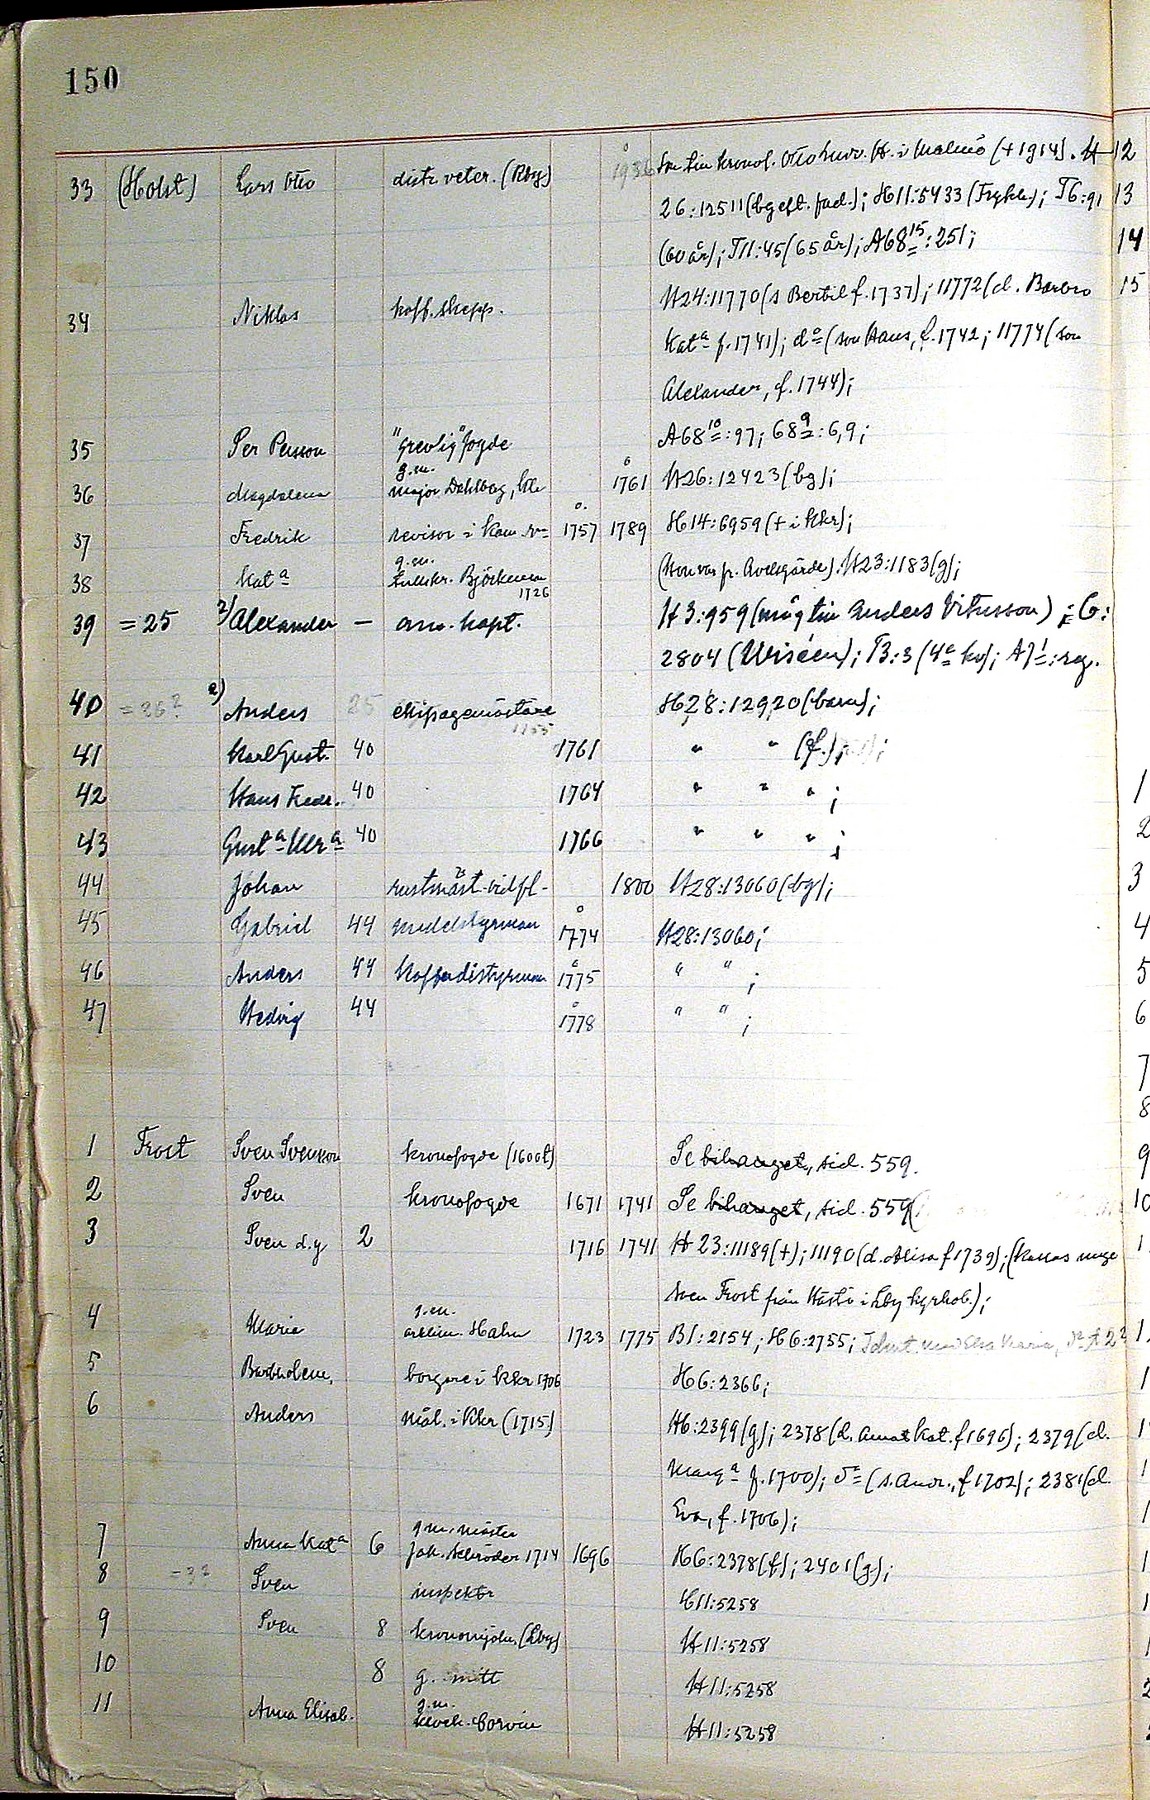 150
33 (Holst) Lars Otto distr. veter. (Rby) Son till kronof. Otto H. i Malmö (+1914). H 12
26:12511 (bg eft. fad.); H11:5433 (Frykh.); T6:91 13
(60 år); T11:45 (65 år); A68 15:251; 14
34 Niklas koff. skepp. H24:11770 (s Bertil f. 1737); 11772 (d. Barbro 15
Kat a f. 1741); do (son Hans, f. 1742; 11774 (son
Alexander, f. 1744);
35 Per Persson "grevlig" fogde A68 10:97; 68 9:6,9;
36 Magdalena g.m. major Dahlberg, 1761 H26:12423 (bg);
37 Fredrik revisor i kam. 1757 1789 H14:6959 (+ i Kkr);
38 Kat a g.m. Björkman 1726 (Hon var fr. Avelsgärde). H23:1183 (g);
39 =25 2) Alexander — arm. kapt. H3:959 (måg till Anders Vitusson); G:
2804 (Wiséen); B:3 (4e kv); A7 1:reg.
40 =26? 2) Anders 25 ekipagemästare 1755 H28:12920 (barn);
41 Karl Gust. 40 1761 " " (f.);
42 Hans Fredr. 40 1764 " " " ;
43 Gust a Ulr a 40 1766 " " " ;
44 Johan rustmäst. vid fl. 1800 H28:13060 (bg);
45 Gabriel 44 medelstyrman 1774 H28:13060;
46 Anders 44 Kofferdistyrman 1775 " " ;
47 Hedvig 44 1778 " " ;
1 Frost Sven Svensson kronofogde (1600t) Se bihanget, sid. 559.
2 Sven kronofogde 1671 1741 Se bihanget, sid. 559
3 Sven d.y 2 1716 1741 H23:11189 (+); 11190 (d. Alisa f 1739); (kallas unge
Sven Frost från Hästö i Lby kyrkob.);
4 Maria g.m. Hahn 1723 1775 B1:2154; H6:2755; Ident. med Elsa Maria,
5 Bartholom. borgare i Kkr 1706 H6:2366;
6 Anders mål. i Kkr (1715) H6:2399 (g); 2378 (d. Anna Kat. f 1696); 2379 (d.
Marg a f. 1700); do (s. Andr., f 1702); 2381 (d.
Eva, f. 1706);
7 Anna Kat a 6 g.m. mäster Joh. Schröder 1714 1696 H6:2378 (f); 2401 (g);
8 =3? Sven inspektor H11:5258
9 Sven 8 (Lby) H11:5258
10 8 g. H11:5258
11 Anna Elisab. g.m. Corvin H11:5258
1
2
3
4
5
6
7
8
9
10